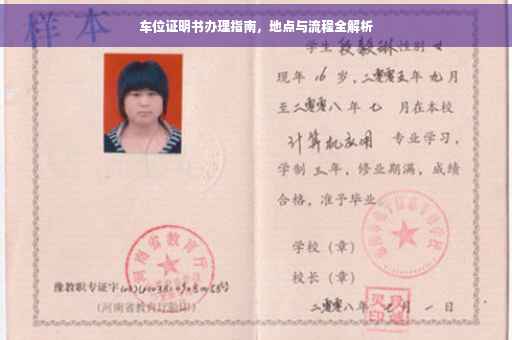 车位证明书办理指南，地点与流程全解析
样本
学生段毅琳性别女
现年16岁，二零零五年九月
至二零零八年七月在本校
计算机应用 专业学习，
学制三年，修业期满，成绩
合格，准予毕业
学校（章）
校长（章）
二零零八年七月一日
豫教职专证字
（河南省教育厅验印）
河南省教育厅